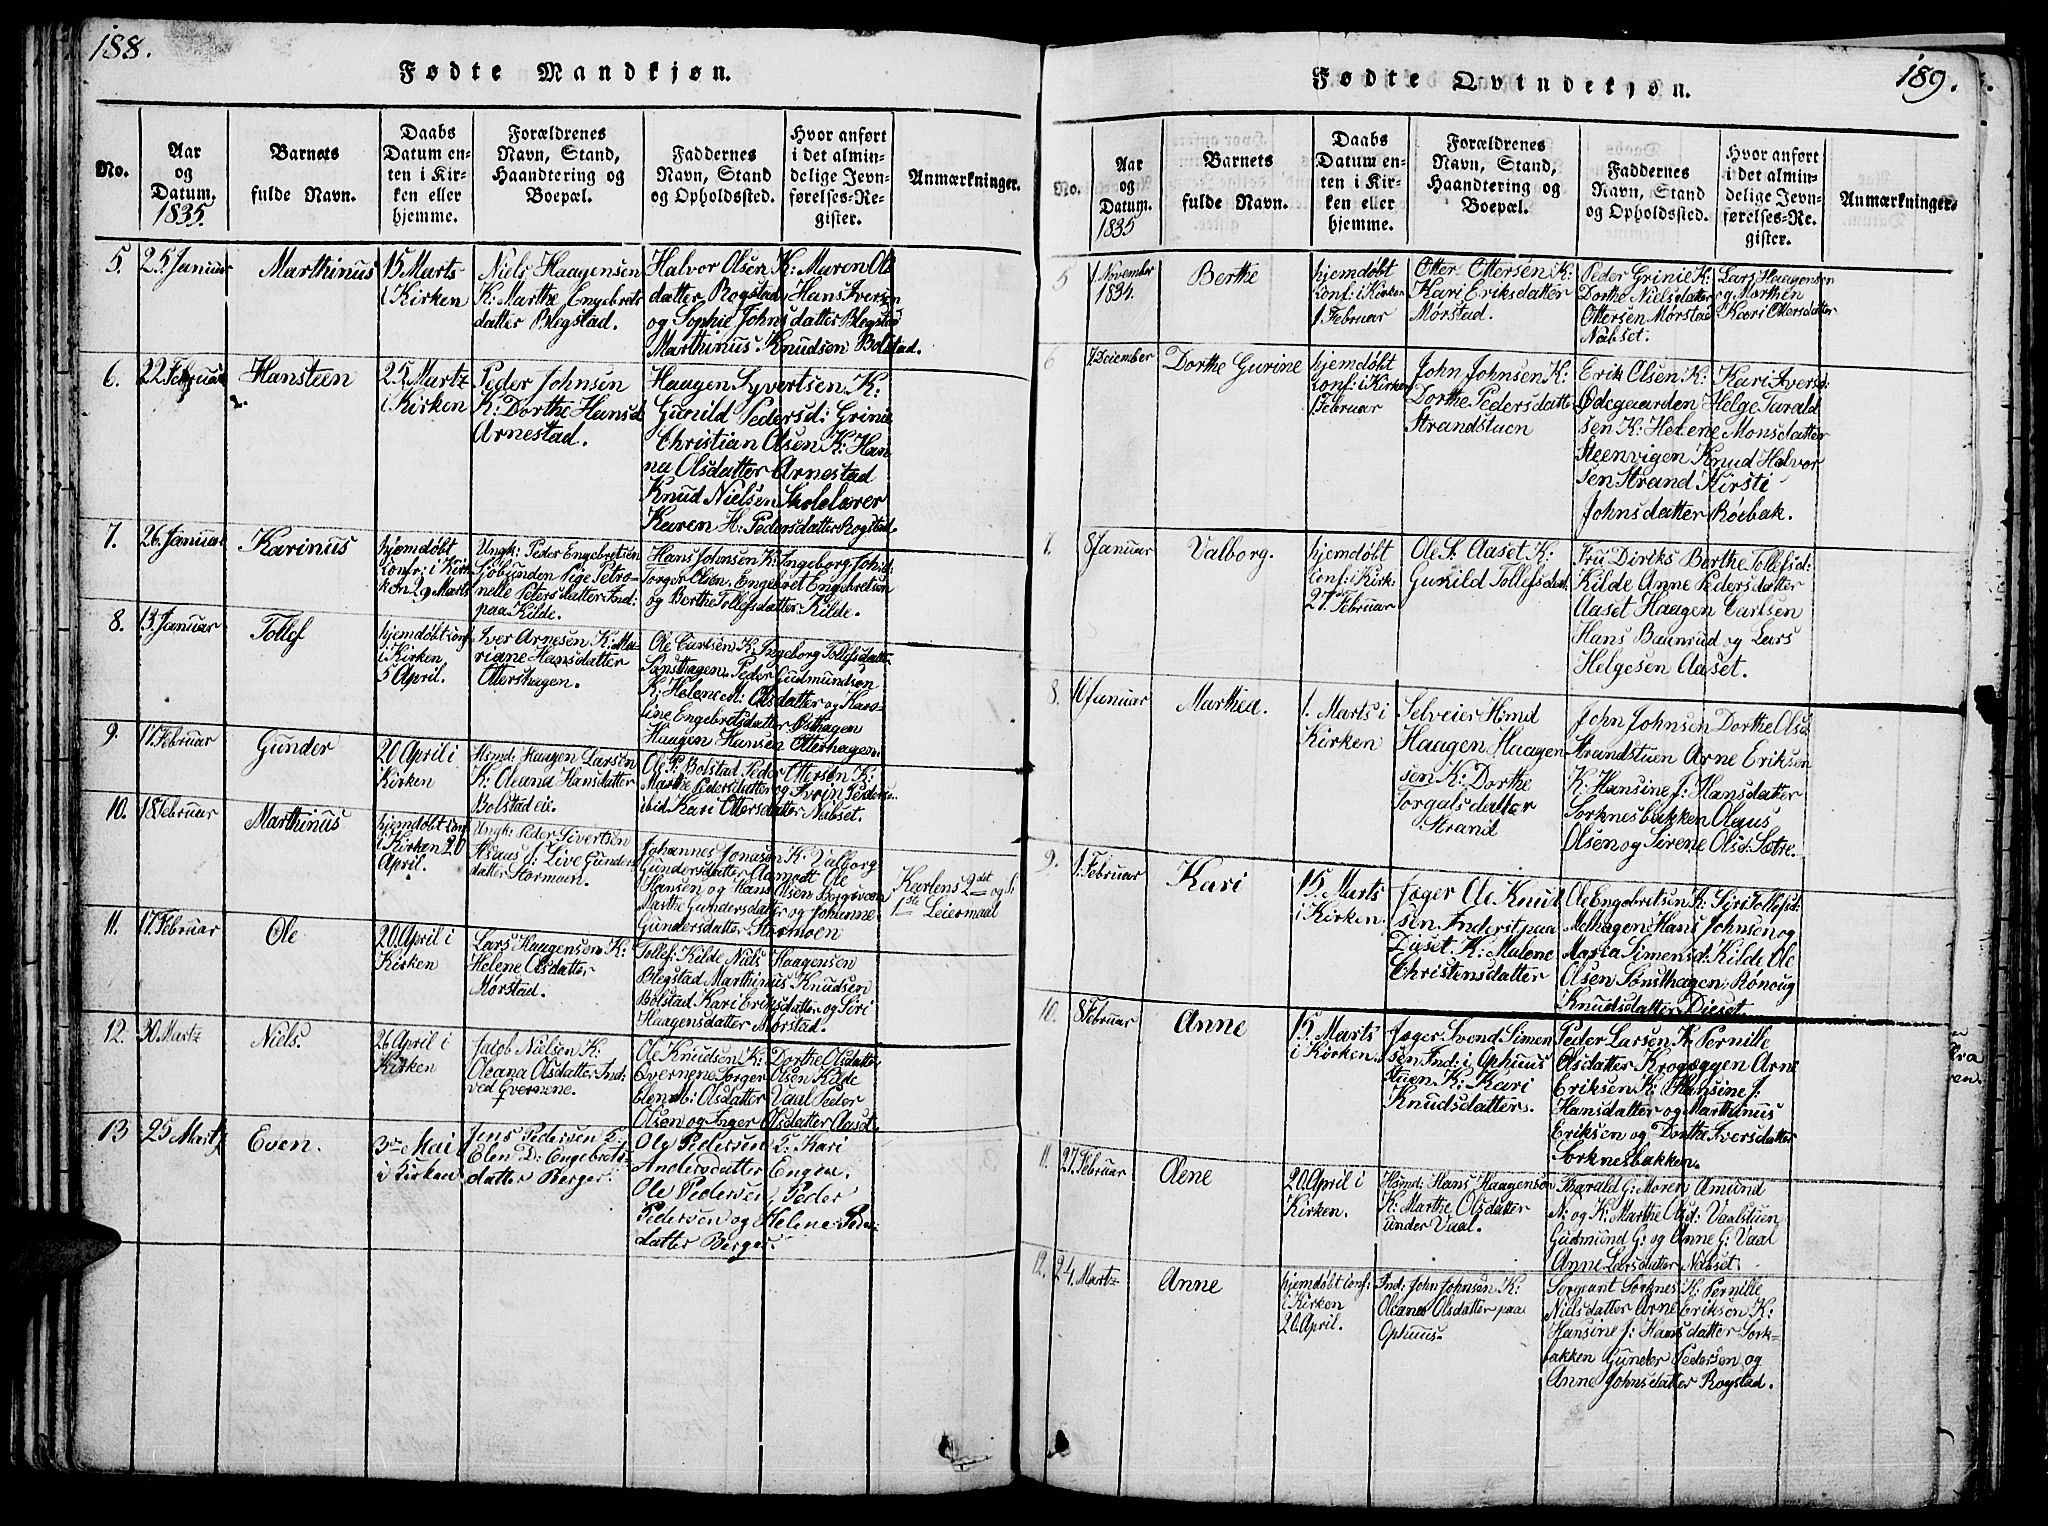 188.
Fødte Mandkjøn.
No.
Aar
og
Datum.
1835.
Barnets
fulde Navn.
Daabs
Datum en-
ten i Kir-
ken eller
hjemme.
Forældrenes
Navn, Stand,
Haandtering og
Boepæl.
Faddernes
Navn, Stand
og Opholdssted.
Hvor anført
i det almin-
delige Jevn-
førelses-Re-
gister.
Anmærkninger.
5.
25 Januar
Marthinus
15 Marts
i Kirken
Niels Haagensen
K: Marthe Engebrets
datter Blegstad.
Halvor Olsen K: Maren Ols
datter Rogstad Hans Iversen
og Sophie Johnsdatter Blegstad
Marthinus Knudsen Bolstad.
6.
22 Februar
Hansteen
25 Martz
i Kirken
Peder Johnsen
K: Dorthe Hansd
Arnestad.
Haagen Syvertsen K:
Gunild Pedersd: Grinie
Christian Olsen K: Han
na Olsdatter Arnestad
Knud Nielsen Skolelærer
Karen H: Pedersdatter Rogstad.
7.
26 Januar
Karinus
hjemdøbt
Conf: i Kir
ken 29 Marts
Ungk: Peder Engebretsen
Sjøbunden Pige Petro-
nelle Petersdatter Ind:
paa Kilde.
Hans Johnsen K: Ingeborg Johd:
Torger Olsen. Engebret Engebretsen
og Berthe Tollefsdatter Kilde.
8.
13 Januar
Tollef
hjemdøbt conf
i Kirken
5 April.
Iver Arnesen K: Ma-
riane Hansdatter
Ottershagen.
Ole Carlsen K: Ingeborg Tollefsdatter
Sønsthagen. Peder Gudmundsen
K: Helene M: Olsdatter og Karo-
line Engebretsdatter Østhagen
Haagen Hansen Otterhagen
9.
17 Februar
Gunder
20 April i
Kirken
Hsmd: Haagen Larsen
K: Oleana Hansdatter
Bolstadeie.
Ole P: Bolstad Peder Ottersen K:
Marthe Pedersdatter og Ivrin Peders
ibid Kari Ottersdatter Nabset.
10.
18 Februar
Marthinus
hjemdøbt conf
i Kirken 20
April.
Ungk: Peder Sivertsen
Aasaas P: Live Gunders
datter Stormoen.
Johannes Jonasen K: Valborg
Gundersdatter Aamodt Ole
Hansen og Hans Olsen Borgsveen
Marthe Gundersdatter og Johanne
Gundersdatter Stormoen
Karlens 2det og P:
1ste Leiermaal
11.
17 Februar
Ole
20 April i
Kirken
Lars Haagensen K:
Helene Olsdatter
Mørstad.
Tollef: Kilde Niels Haagensen
Blegstad Marthinus Knudsen
Bolstad Kari Eriksdatter og Siri
Haagensdatter Mørstad.
12.
30 Martz
Niels.
26 April i
Kirken
Jacob Nielsen K:
Oleana Olsdatter Ind:
ved Qvernene.
Ole Knudsen K: Dorthe Olsdatter
Qvernene Torger Olsen Kilde
Elen M: Olsdatter Vaal Peder
Olsen og Inger Olsdatter Aaset.
13
25 Martz
Even.
3die Mai
i Kirken
Jens Pedersen K:
Elen D: Engebrets
datter Berger.
Ole Pedersen K: Kari
Andersdatter Engen.
Ole Pedersen, Peder
Pedersen og Helene Peders
datter Berger.
189.
Fødte Qvindekjøn.
No.
Aar
og
Datum.
1835
Barnets
fulde Navn.
Daabs
Datum en-
ten i Kir-
ken eller
hjemme.
Forældrenes
Navn, Stand,
Haandtering og
Boepæl.
Faddernes
Navn, Stand
og Opholdsted.
Hvor anført
i det almin-
delige Jevn-
førelses-Re-
gister.
Anmærkninger.
5
1 November
1834.
Berthe
hjemdøbt
Conf: i Kirken
1 Februar
Otter Ottersen K:
Kari Eriksdatter
Mørstad.
Peder Grinie K: Lars Haagensen
Dorthe Nielsdatter og Marthin
Ottersen Mørstad Kari Ottersdatter
Nabset.
6
7 December
Dorthe Gurine
hjemdøbt
Conf: i Kirken
1 Februar
John Johnsen K:
Dorthe Pedersdatter
Strandstuen
Erik Olsen K: Kari Iversd:
Ødegaarden Helge Tarald
sen K: Helene Monsdatter
Steenvigen Knud Halvor
sen Strand Kirsti
Johnsdatter Røebak.
7.
8 Januar
Valborg.
hjemdøbt
Conf: i Kirk:
27 Februar
Ole P: Aaset K:
Gunild Tollefsdat.
Fru Diriks Berthe Tollefsd:
Kilde Anne Pedersdatter
Aaset Haagen Carlsen
Hans Baunrud og Lars
Helgesen Aaset.
8.
10 Januar
Marthea.
1. Marts i
Kirken
Selveier Hsmd
Haagen Haagen
sen K: Dorthe
Torgalsdatter
Strand
John Johnsen Dorthe Olsd
Strandstuen Arne Eriksen
K: Hansine J: Hansdatter
Sorknesbakken Olaus
Olsen og Sirene Olsd: Sætre.
9.
1 Februar
Kari
15. Marts
i Kirken.
Jæger Ole Knud
sen Inderst paa
Diset K: Malene
Christensdatter
Ole Engebretsen K: Siri Tollefsd:
Melhagen Hans Johnsen og
Maria Simensd: Kilde Ole
Olsen Sønsthagen Rønoug
Knudsdatter Dieset.
10.
8 Februar
Anne
15. Marts
i Kirken.
Jæger Svend Simen
sen Ind: i Ophuus
stuen K: Kari
Knudsdatter.
Peder Larsen K: Pernille
Olsdatter Krogæggen Arne
Eriksen K: Hansine J:
Hansdatter og Marthinus
Eriksen og Dorthe Iversdatter
Sorknesbakken.
11.
27 Februar
Olene
20 April i
Kirken.
Hsmd: Hans Haagensen
K: Marthe Olsdatter
under Vaal.
Tharald G: Moren Amund
N: og K: Marthe Olsd: Vaalstuen
Gudmund G: og Anne G: Vaal
Anne Larsdatter Nabset.
12.
24 Martz
Anne
hjemdøbt conf:
i Kirken
20 April.
Ind: John Johnsen K:
Oleane Olsdatter paa
Ophuus.
Sergeant Sorknes K: Pernille
Nielsdatter Arne Eriksen K:
Hansine J: Hansdatter Sork-
bakken Gunder Pedersen og
Anne Johnsdatter Rogstad.